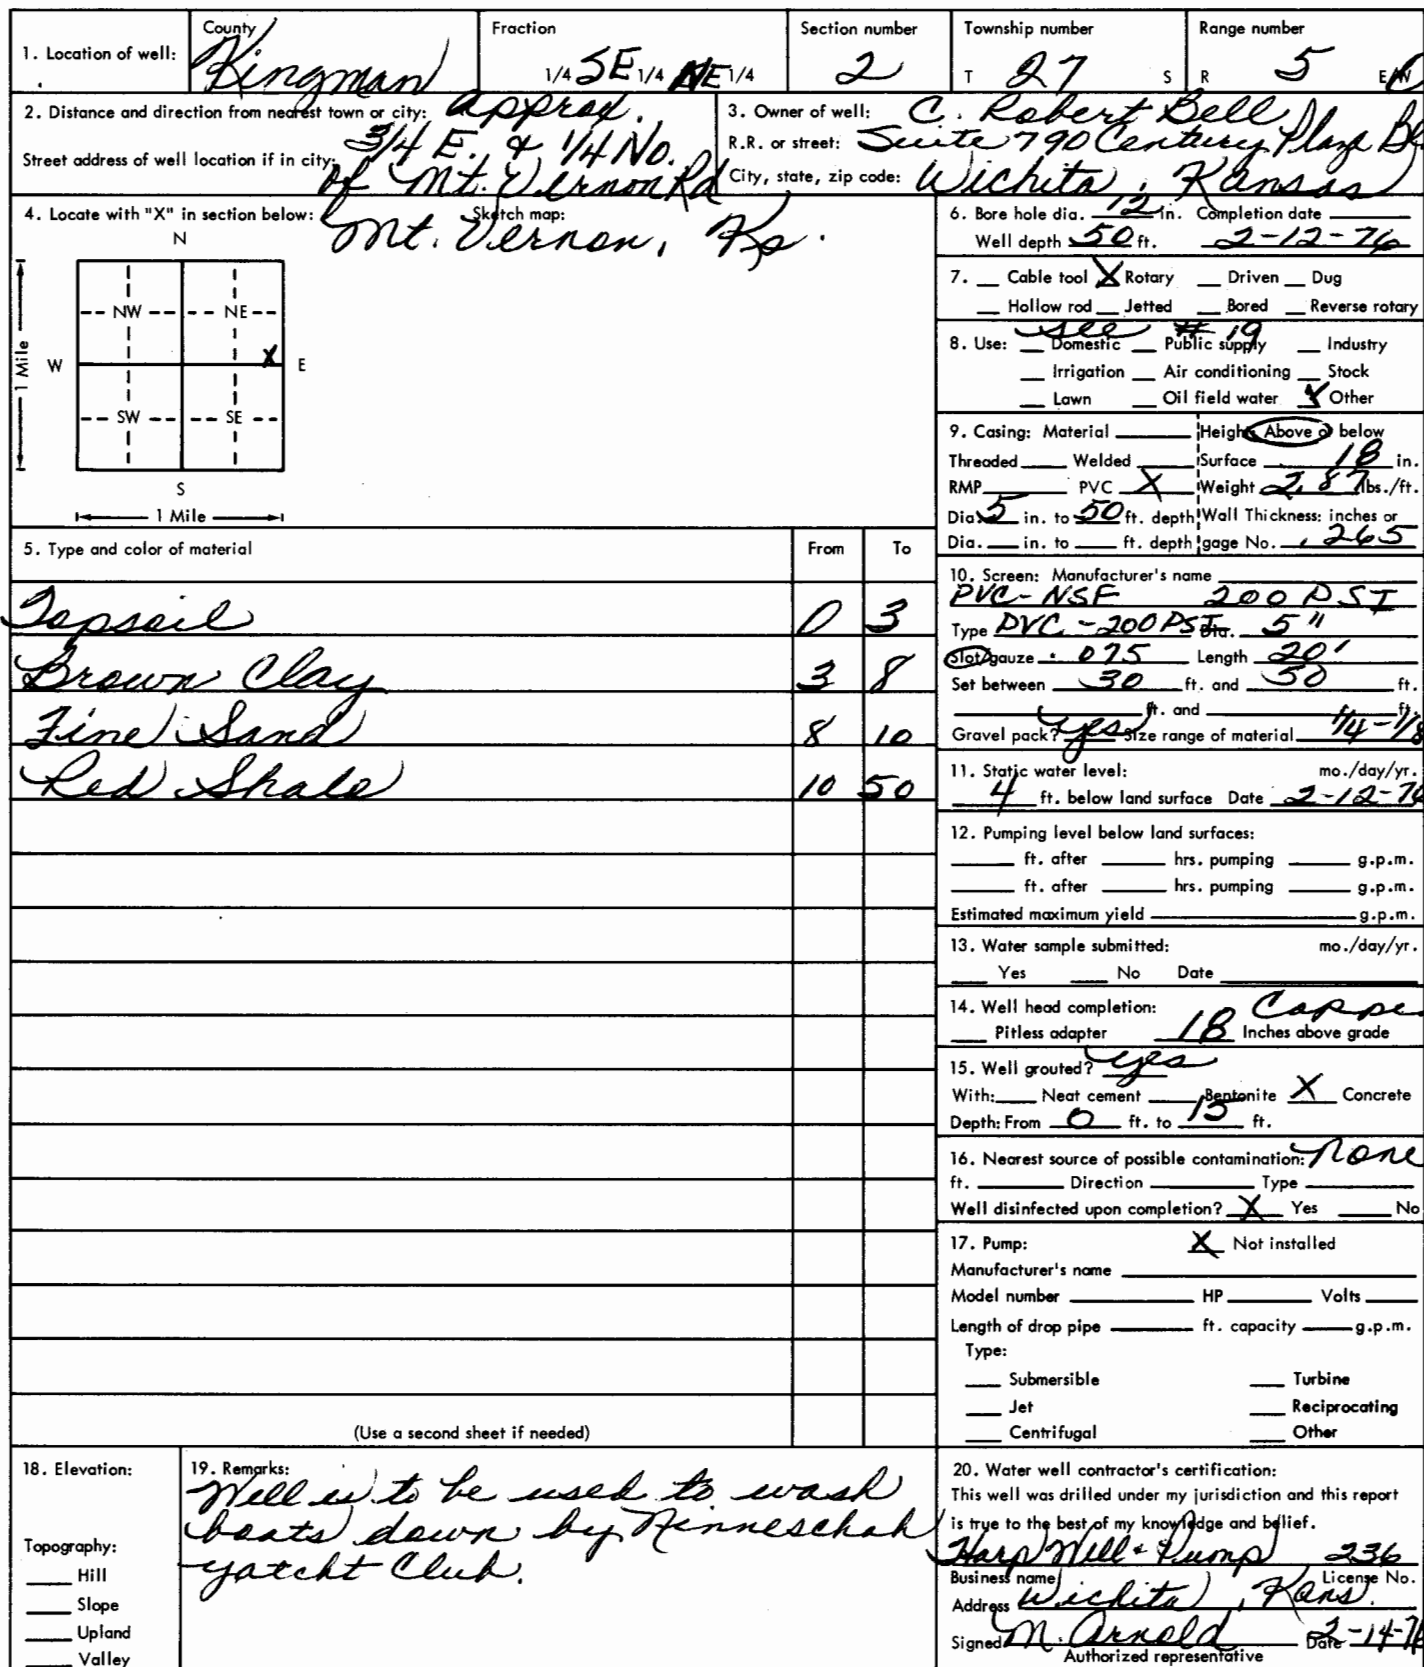 1. Location of well:
County
Kingman
Fraction
1/4 SE 1/4 NE 1/4
Section number
2
Township number
T 27 S
Range number
R 5 E/W
2. Distance and direction from nearest town or city: approx.
3/4 E. & 1/4 No.
Street address of well location if in city:
of Mt. Vernon Rd
Mt. Vernon, Ks.
3. Owner of well: C. Robert Bell
R.R. or street: Suite 790 Century Plaza
City, state, zip code: Wichita, Kansas
4. Locate with "X" in section below:
Sketch map:
N
NW NE
W X E
SW SE
S
1 Mile
1 Mile
6. Bore hole dia. 12 in. Completion date
Well depth 50 ft. 2-12-76
7. Cable tool X Rotary Driven Dug
Hollow rod Jetted Bored Reverse rotary
see # 19
8. Use: Domestic Public supply Industry
Irrigation Air conditioning Stock
Lawn Oil field water X Other
9. Casing: Material Height: Above or below
Threaded Welded Surface 18 in.
RMP PVC X Weight 2.87 lbs./ft.
Dia. 5 in. to 50 ft. depth Wall Thickness: inches or
Dia. in. to ft. depth gage No. .265
5. Type and color of material From To
Topsoil 0 3
Brown Clay 3 8
Fine Sand 8 10
Red Shale 10 50
(Use a second sheet if needed)
10. Screen: Manufacturer's name
PVC-NSF 200 PSI
Type PVC - 200 PSI Dia. 5"
Slot/gauze .075 Length 20'
Set between 30 ft. and 50 ft.
ft. and ft.
Gravel pack? yes Size range of material 1/4-1/8
11. Static water level: mo./day/yr.
4 ft. below land surface Date 2-12-76
12. Pumping level below land surfaces:
ft. after hrs. pumping g.p.m.
ft. after hrs. pumping g.p.m.
Estimated maximum yield g.p.m.
13. Water sample submitted: mo./day/yr.
Yes No Date
14. Well head completion: Cappe
Pitless adapter 18 Inches above grade
15. Well grouted? yes
With: Neat cement Bentonite X Concrete
Depth: From 0 ft. to 15 ft.
16. Nearest source of possible contamination: None
ft. Direction Type
Well disinfected upon completion? X Yes No
17. Pump: X Not installed
Manufacturer's name
Model number HP Volts
Length of drop pipe ft. capacity g.p.m.
Type:
Submersible Turbine
Jet Reciprocating
Centrifugal Other
18. Elevation:
Topography:
Hill
Slope
Upland
Valley
19. Remarks:
Well is to be used to wash
boats down by Ninneschah
yatcht Club.
20. Water well contractor's certification:
This well was drilled under my jurisdiction and this report
is true to the best of my knowledge and belief.
Harp Well & Pump 236
Business name License No.
Address Wichita, Kans.
Signed M. Arnold Date 2-14-76
Authorized representative